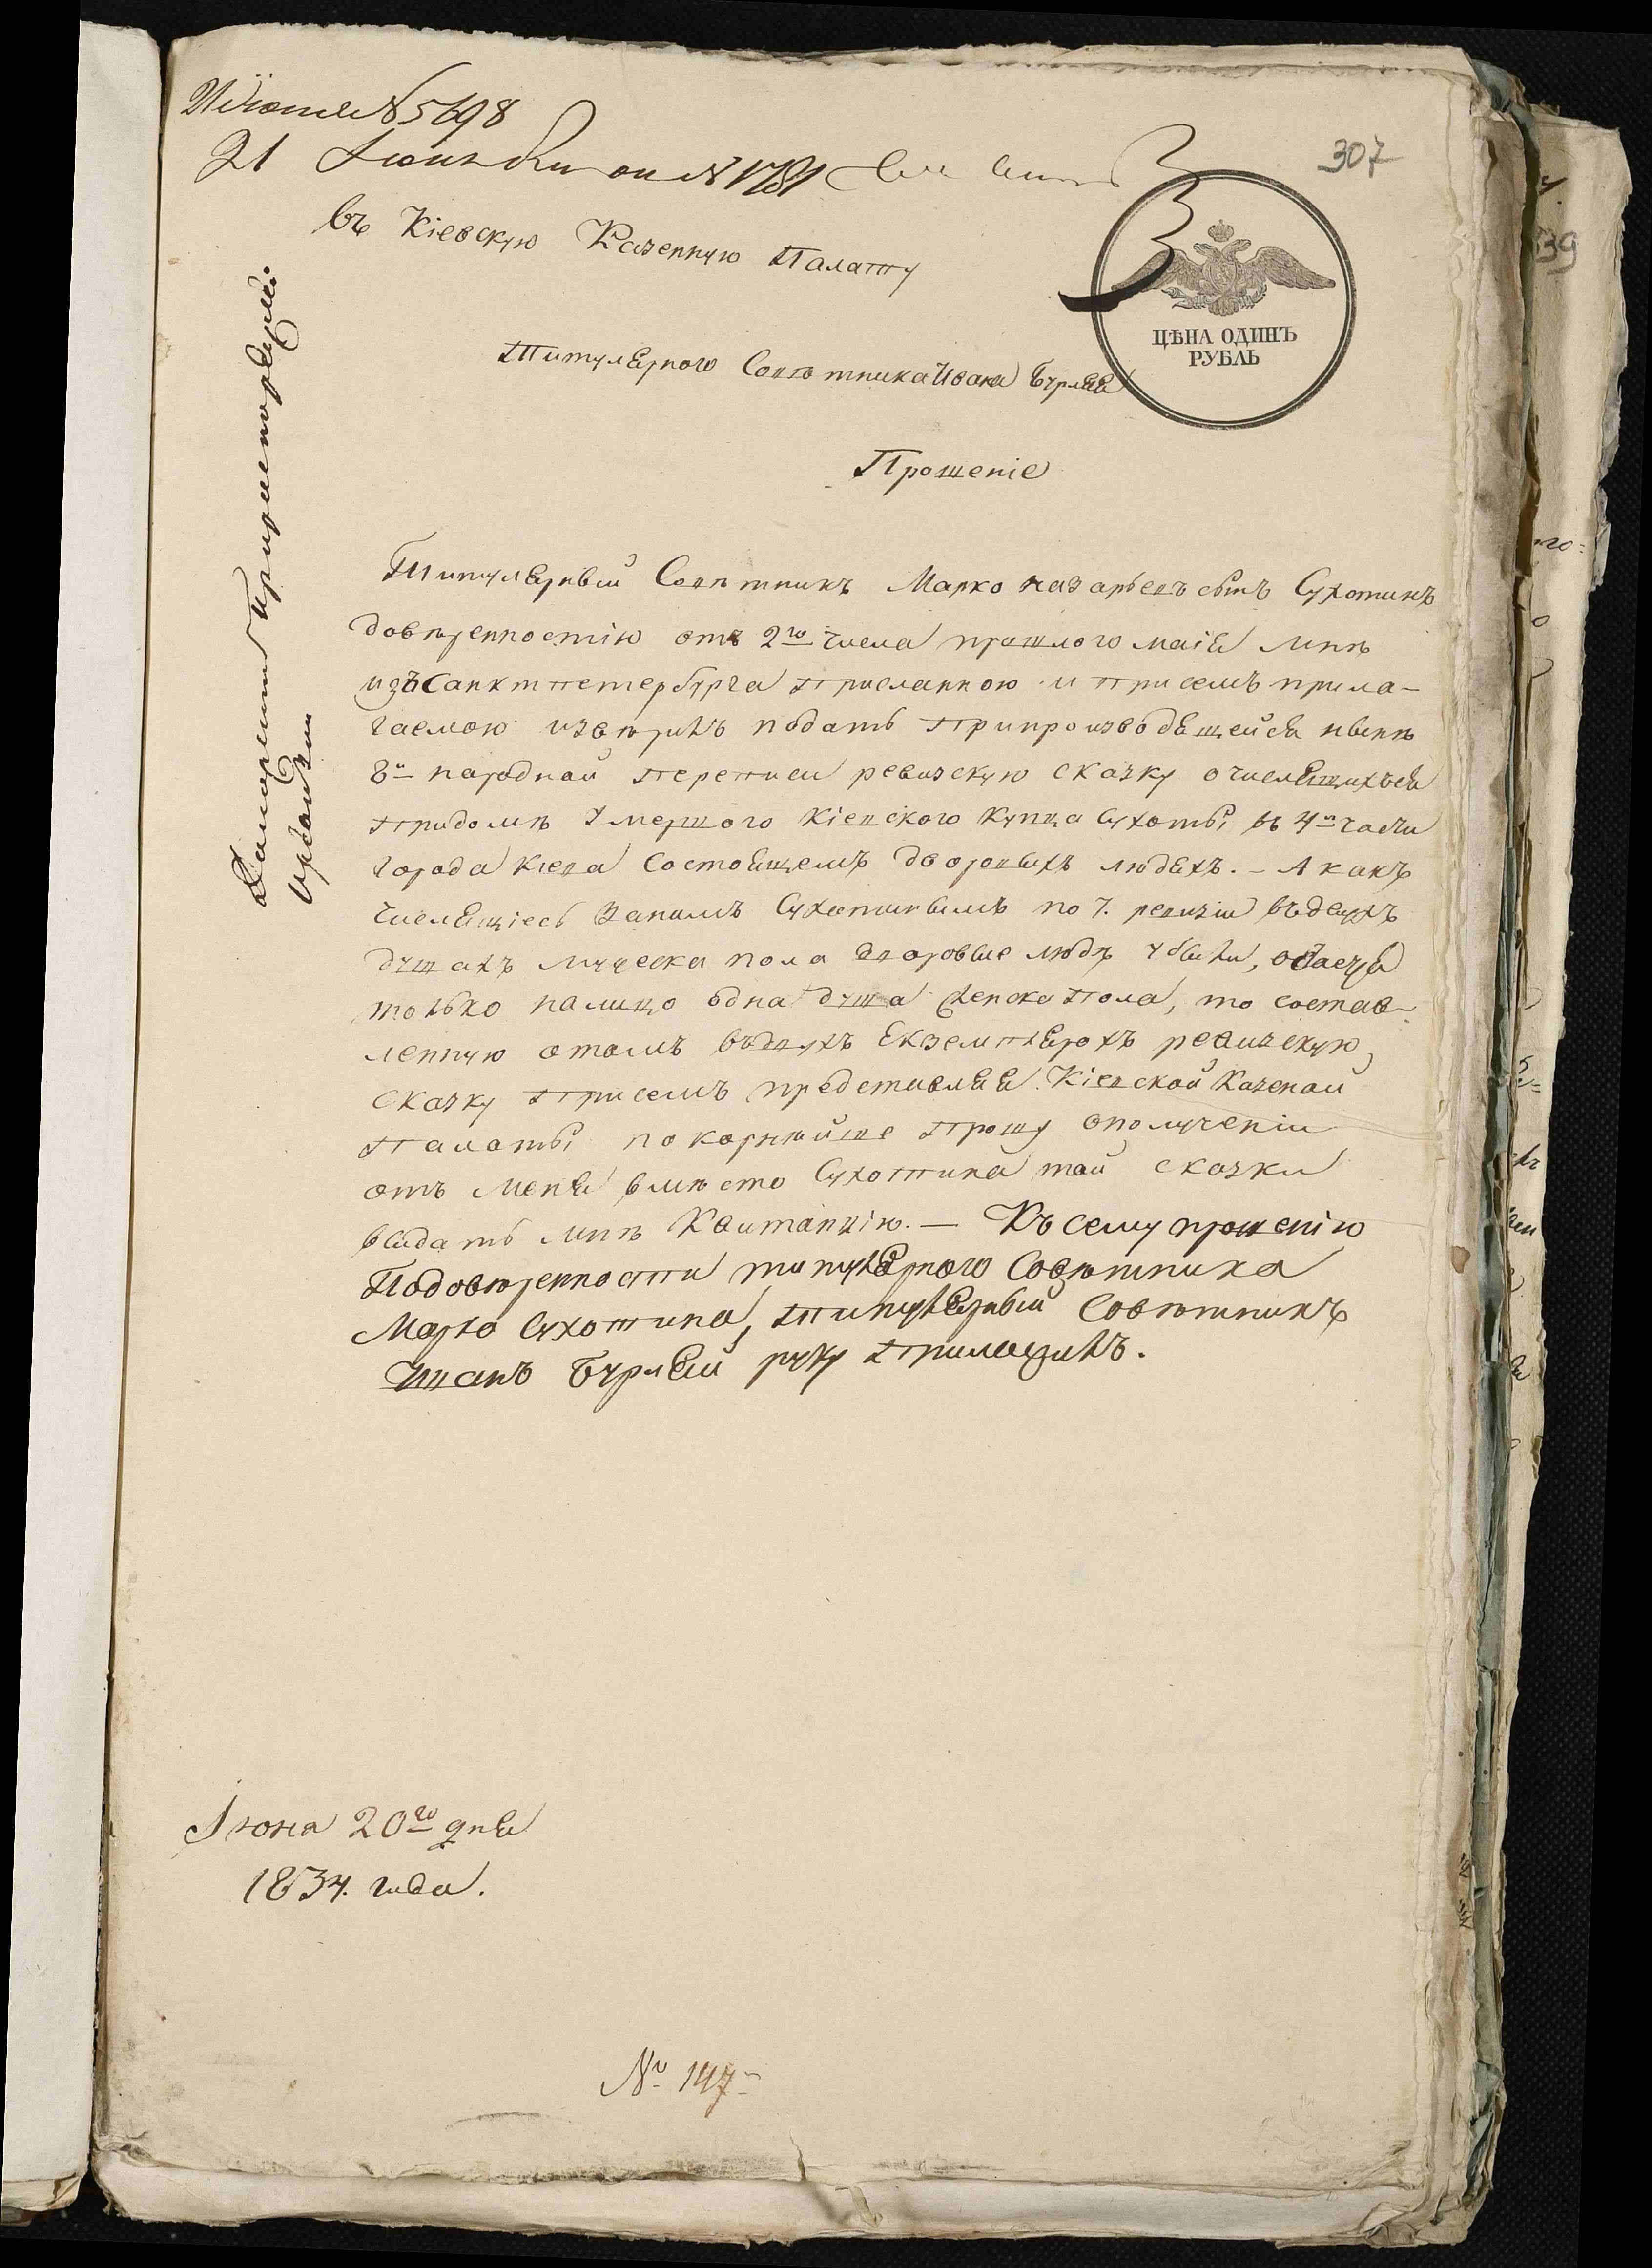 № 5698
21 Июня
307
Въ Кіевскую Казенную Палату
ЦѢНА ОДИНЪ
РУБЛЬ
Титулярного Советника Ивана Бурлея
Прошеніе
Титулярный Советникъ Марко Назарьевъ сынъ Сухотинъ
доверенностію отъ 2го числа прошлого маія мнѣ
изъ Санктпетербурга присланною и присемъ прила-
гаемою изверилъ подать при производящейся нынѣ
8й народной переписи ревизскую сказку о числящихся
придомѣ умершого Кіевского купца Сухоты въ 4й части
города Кіева состоящемъ дворовыхъ людяхъ. - А какъ
числящіесь занимъ Сухотинымъ по 7. ревизіи въ двухъ
душахъ мужеска пола дворовые людѣ убыли, остаеця
только налицо одна душа женска пола, то состав-
ленную отомъ въ двухъ екземплярохъ ревизскую
сказку присемъ представляя Кіевской Казеной
Палаты покорнѣйше прошу ополученіи
отъ меня вмѣсто Сухотина той сказки
выдать мнѣ Квитанцію. — Къ сему прошенію
Подовѣренности титулярного Совѣтника
Марко Сухотина, титулярный Совѣтникъ
Иванъ Бурлей руку приложилъ.
Іюня 20го дня
1834. года.
№ 147